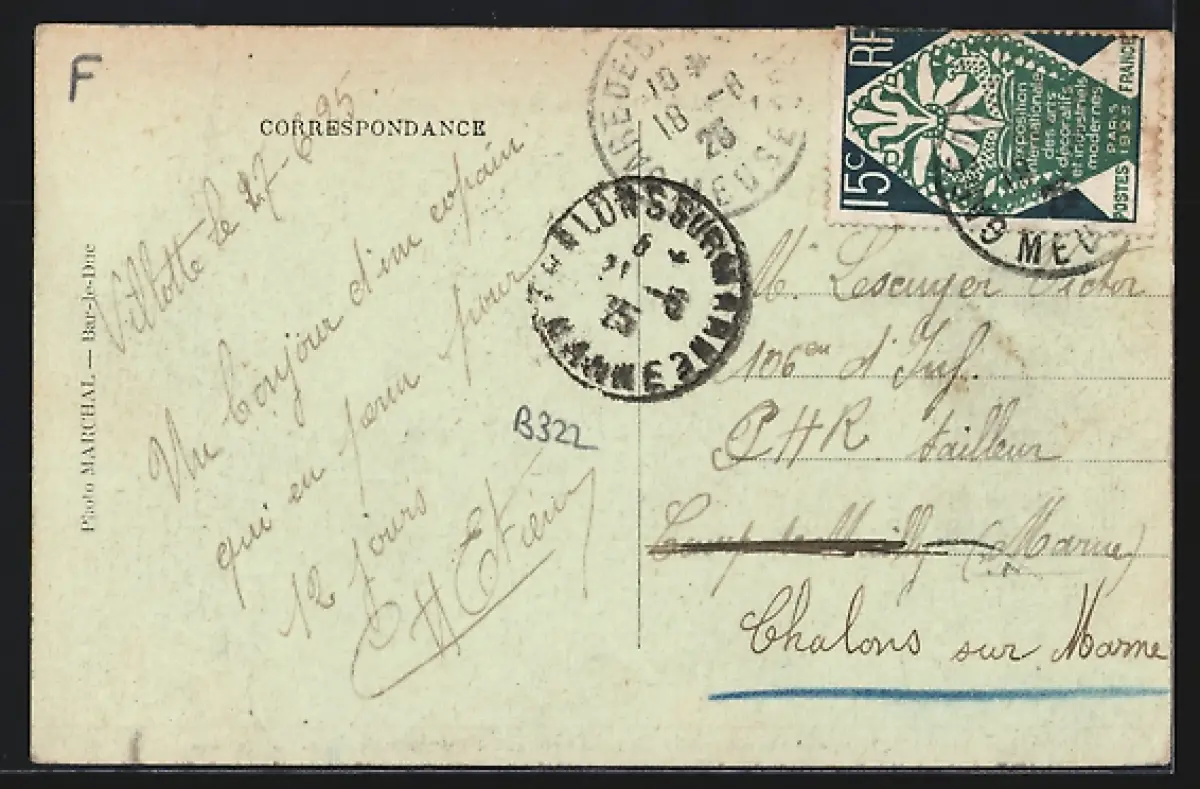 F
CORRESPONDANCE
Villotte le 27-6-25
Un bonjour d'un copain
qui en perm pour
12 jours
Etienne
Photo MARCHAL — Bar-le-Duc
B322
18
25
MEUSE
CHALONS SUR MARNE
MARNE
25
RF
15c
exposition
internationale
des arts
décoratifs
et industriels
modernes
PARIS
1925
POSTES FRANCE
MEU
M. Victor
106em d'Inf.
CHR tailleur
Camp de Mailly (Marne)
Chalons sur Marne